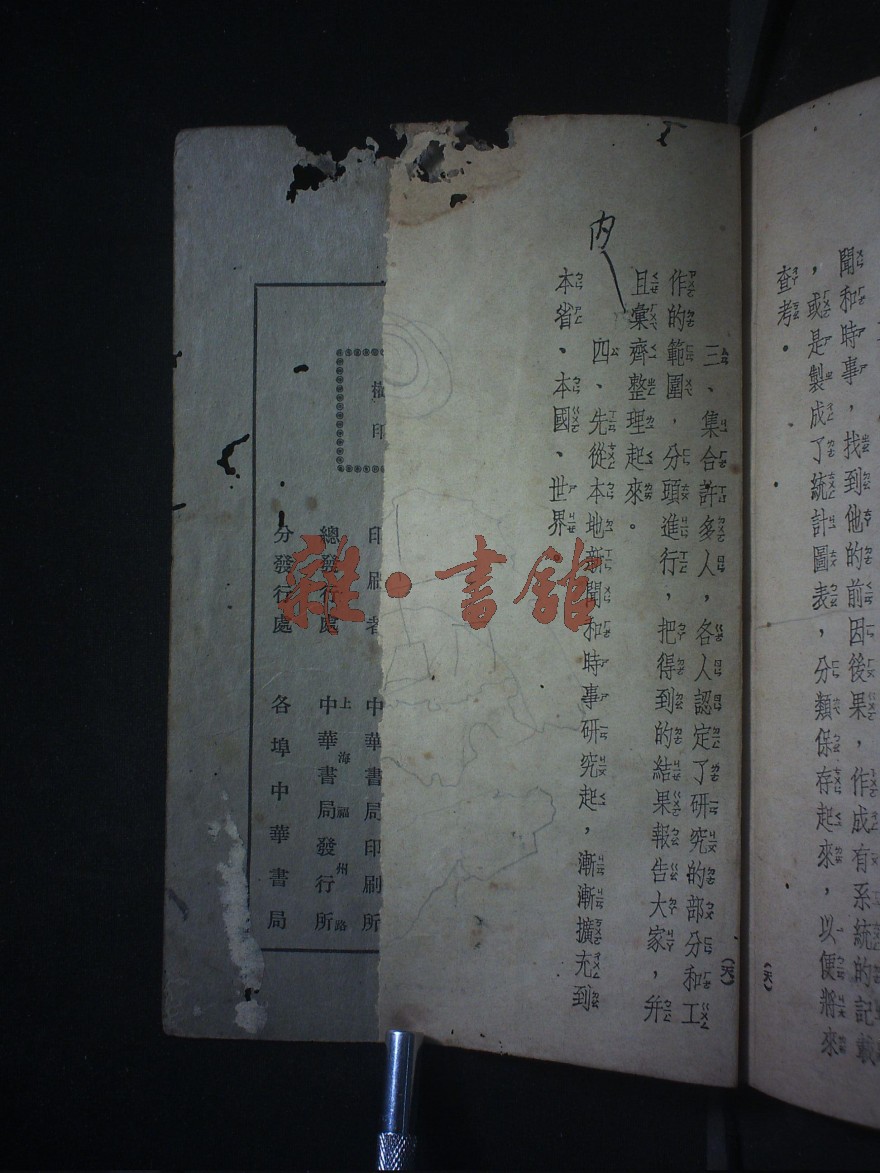 聞和時事，找到他的前因後果，作成有系統的記載
，或是製成了統計圖表，分類保存起來，以便將來
查考。
三、集合許多人，各人認定了研究的部分和工
作的範圍，分頭進行，把得到的結果報告大家，并
且彙齊整理起來。
四、先從本地新聞和時事研究起，漸漸擴充到
本省、本國、世界
內
印刷者 中華書局印刷所
總發行處 上海福州路 中華書局發行所
分發行處 各埠中華書局
雜·書館